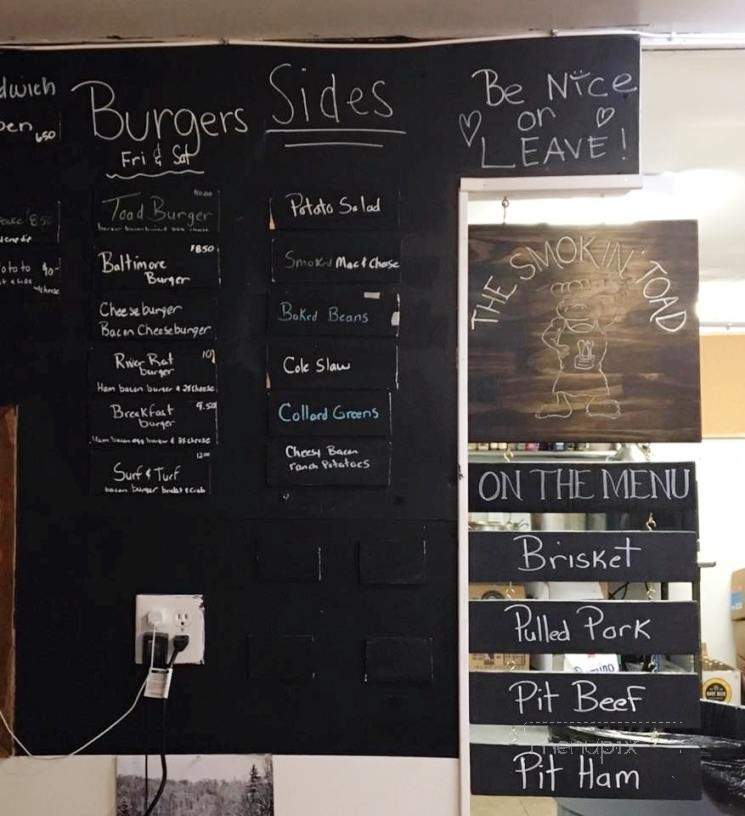 dwich
pen 6.50
8.50
Burgers
Fri & Sat
Toad Burger
Baltimore
Burger
Cheeseburger
Bacon Cheeseburger
River Rat
burger
Ham bacon burger & 3 cheese
Breakfast
burger
9.50
Surf & Turf
12.00
Sides
Potato Salad
Smoked Mac & Cheese
Baked Beans
Cole Slaw
Collard Greens
Cheesy Bacon
ranch Potatoes
Be Nice
or
LEAVE!
THE SMOKIN' TOAD
ON THE MENU
Brisket
Pulled Pork
Pit Beef
Pit Ham
menupix